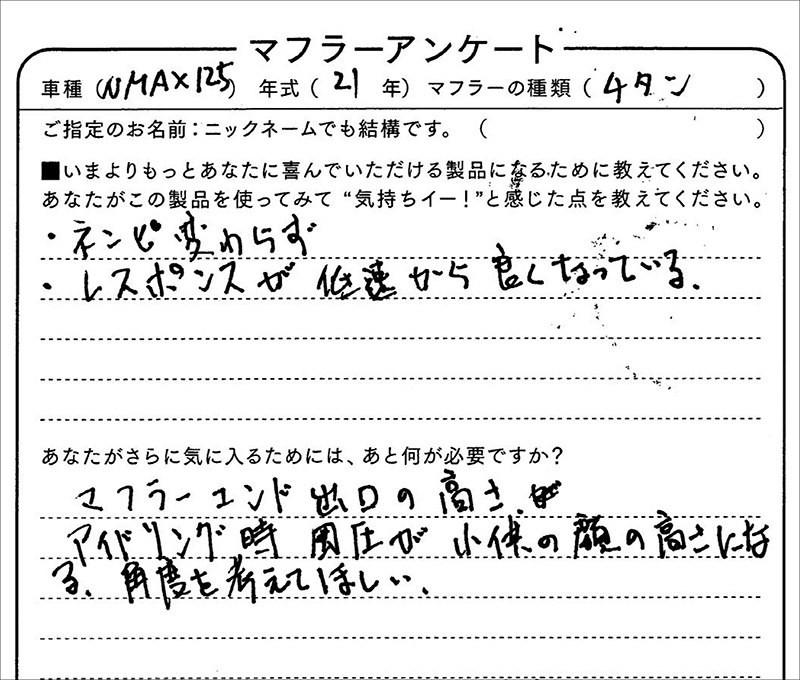 マフラーアンケート
車種(NMAX125) 年式(21年) マフラーの種類(4タン)
ご指定のお名前：ニックネームでも結構です。()
■いまよりもっとあなたに喜んでいただける製品になるために教えてください。
あなたがこの製品を使ってみて“気持ちイー！”と感じた点を教えてください。
・ネンピ変わらず
・レスポンスが低速から良くなっている.
あなたがさらに気に入るためには、あと何が必要ですか？
マフラーエンド出口の高さ
アイドリング時風圧が小供の顔の高さにな
る、角度を考えてほしい.